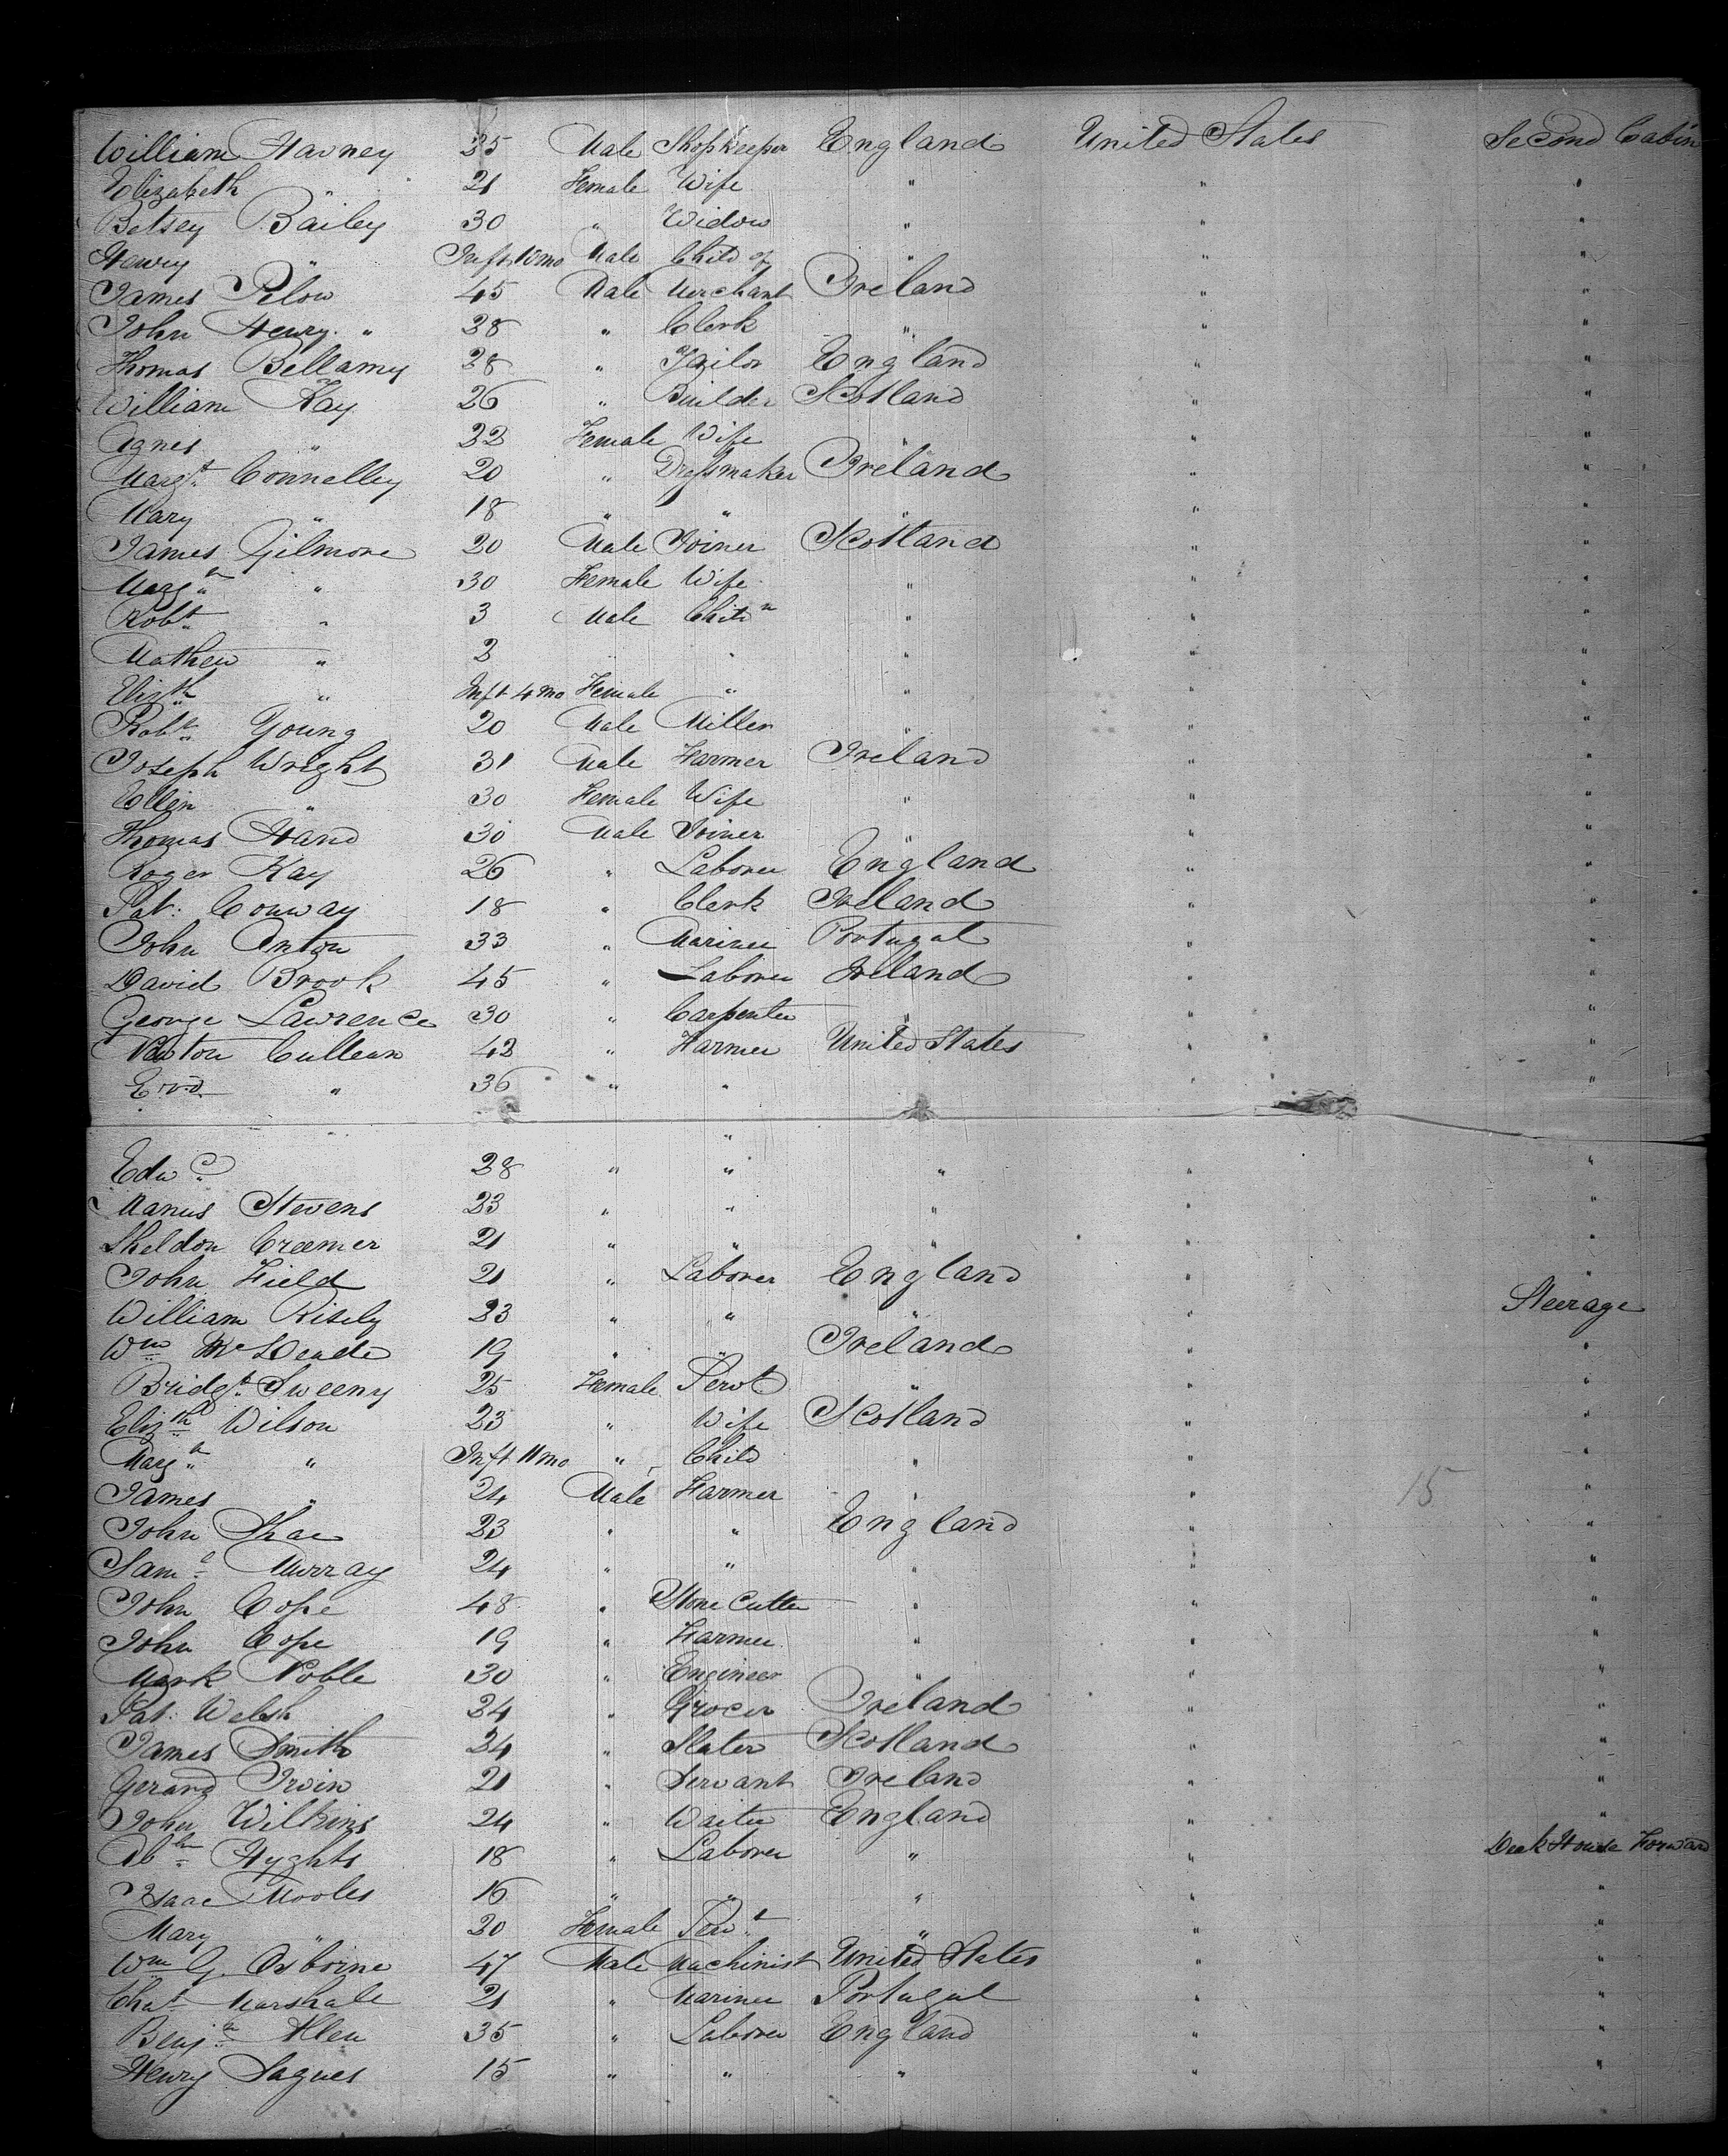 William Harney 25 Male Shopkeeper England United States Second Cabin
Elizabeth " 21 Female Wife " " "
Betsey Bailey 30 " Widow " " "
Henry " Inft 10 mo Male Child of " " "
James Pelow 45 Male Merchant Ireland " "
John Henry " 28 " Clerk " " "
Thomas Bellamy 28 " Tailor England " "
William Kay 26 " Builder Scotland " "
Agnes " 22 Female Wife " " "
Margt Connelley 20 " Dressmaker Ireland " "
Mary " 18 " " " " "
James Gilmore 20 Male Joiner Scotland " "
Margt " 30 Female Wife " " "
Robt " 3 Male Childn " " "
Mathew " 2 " " " " "
Elizth " Inft 4 mo Female " " " "
Robt Young 20 Male Miller " " "
Joseph Wright 31 Male Farmer Ireland " "
Ellen " 30 Female Wife " " "
Thomas Hand 30 Male Joiner " " "
Roger Kay 26 " Laborer England " "
Pat: Conway 18 " Clerk Ireland " "
John Anton 33 " Mariner Portugal " "
David Brook 45 " Laborer Ireland " "
George Lawrence 30 " Carpenter " " "
Newton Cullean 42 " Farmer United States " "
" 36 " " " "
"
Edwd 28 " " " " "
Manus Stevens 23 " " " " "
Sheldon Creemer 21 " " " " "
John Field 21 " Laborer England " "
William Risely 23 " " " " Steerage
Wm Mc Dende 19 " " Ireland " "
Bridgt Sweeny 25 Female Servt " " "
Elizth Wilson 23 " Wife Scotland " "
Margt " Inft 11 mo " Child " " "
James " 24 Male Farmer " " 15 "
John Shae 23 " " England " "
Saml Murray 24 " " " " "
John Cope 48 " Stone Cutter " " "
John Cope 19 " Farmer " " "
Mark Noble 30 " Engineer " " "
Pat: Welsh 24 " Grocer Ireland " "
James Smith 24 " Slater Scotland " "
Gerard Irvin 21 " Servant Ireland " "
John Wilkins 24 " Waiter England " "
Abm Hyghts 18 " Laborer " " Deck House Forward
Isaac Mooles 16 " " " " "
Mary " 20 Female Servt " " "
Wm G. Osborne 47 Male Machinist United States " "
Chas Marshale 21 " Mariner Portugal " "
Benjn Allen 35 " Laborer England " "
Henry Sagues 15 " " " " "